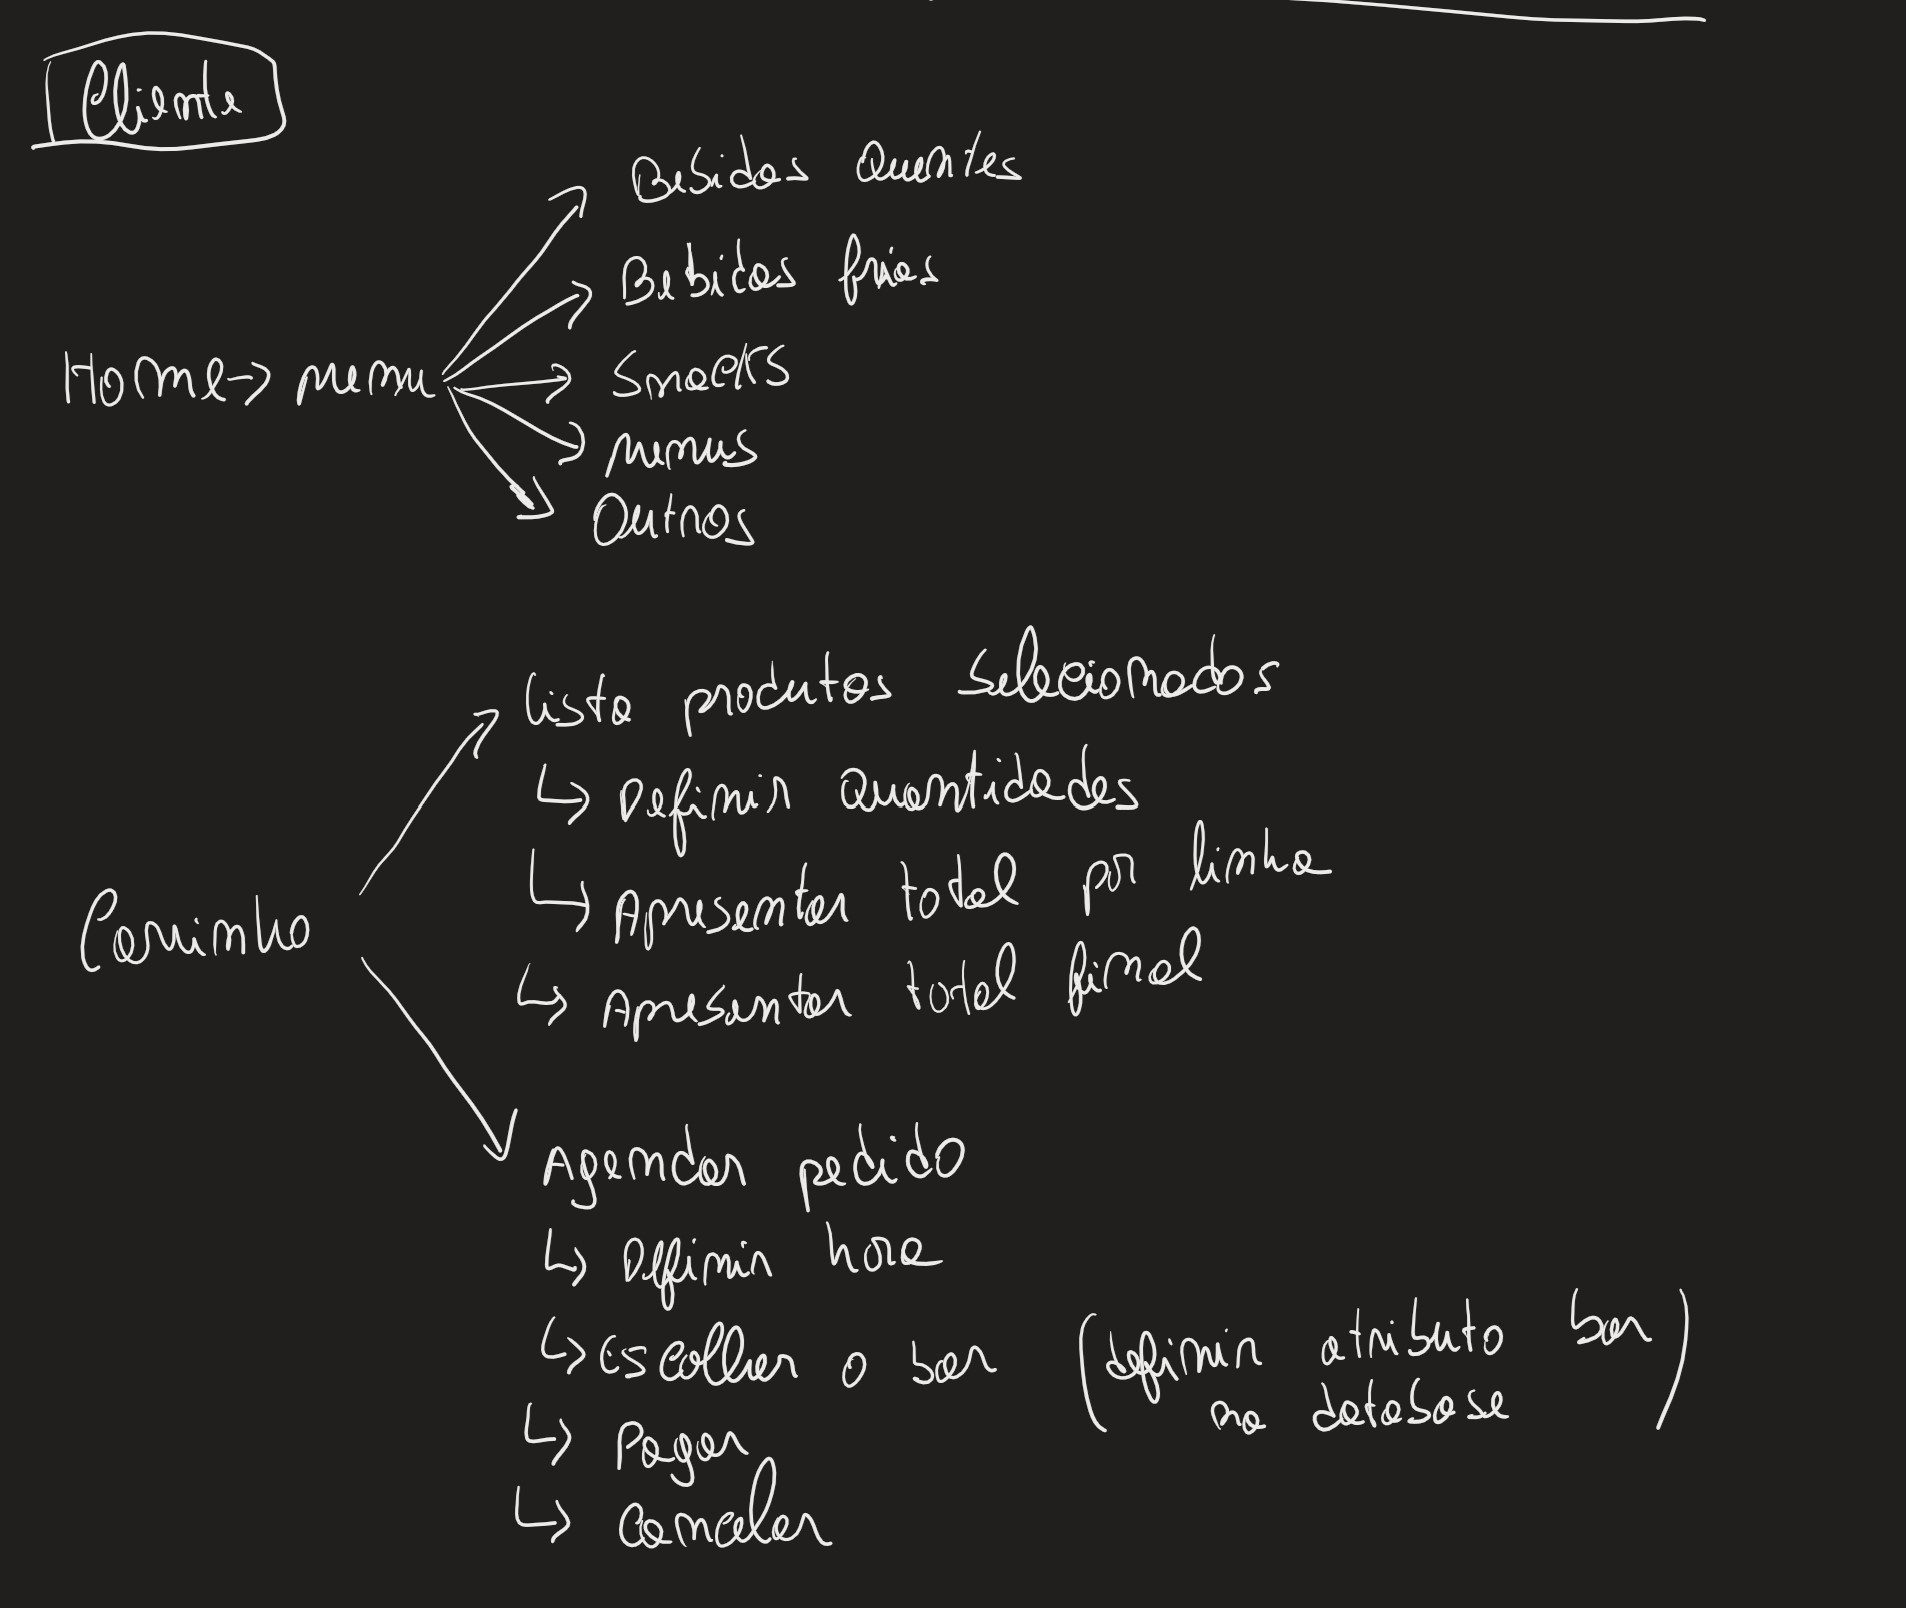 Cliente
Bebidas Quentes
Bebidas frias
Home → menu
Snacks
menus
Outros
Lista produtos Selecionados
↳ Definir Quantidades
↳ Apresentar total por linha
Carrinho
↳ Apresentar total final
Agendar pedido
↳ Definir hora
↳ Escolher o bar (definir atributo bar
na database)
↳ Pagar
↳ Cancelar